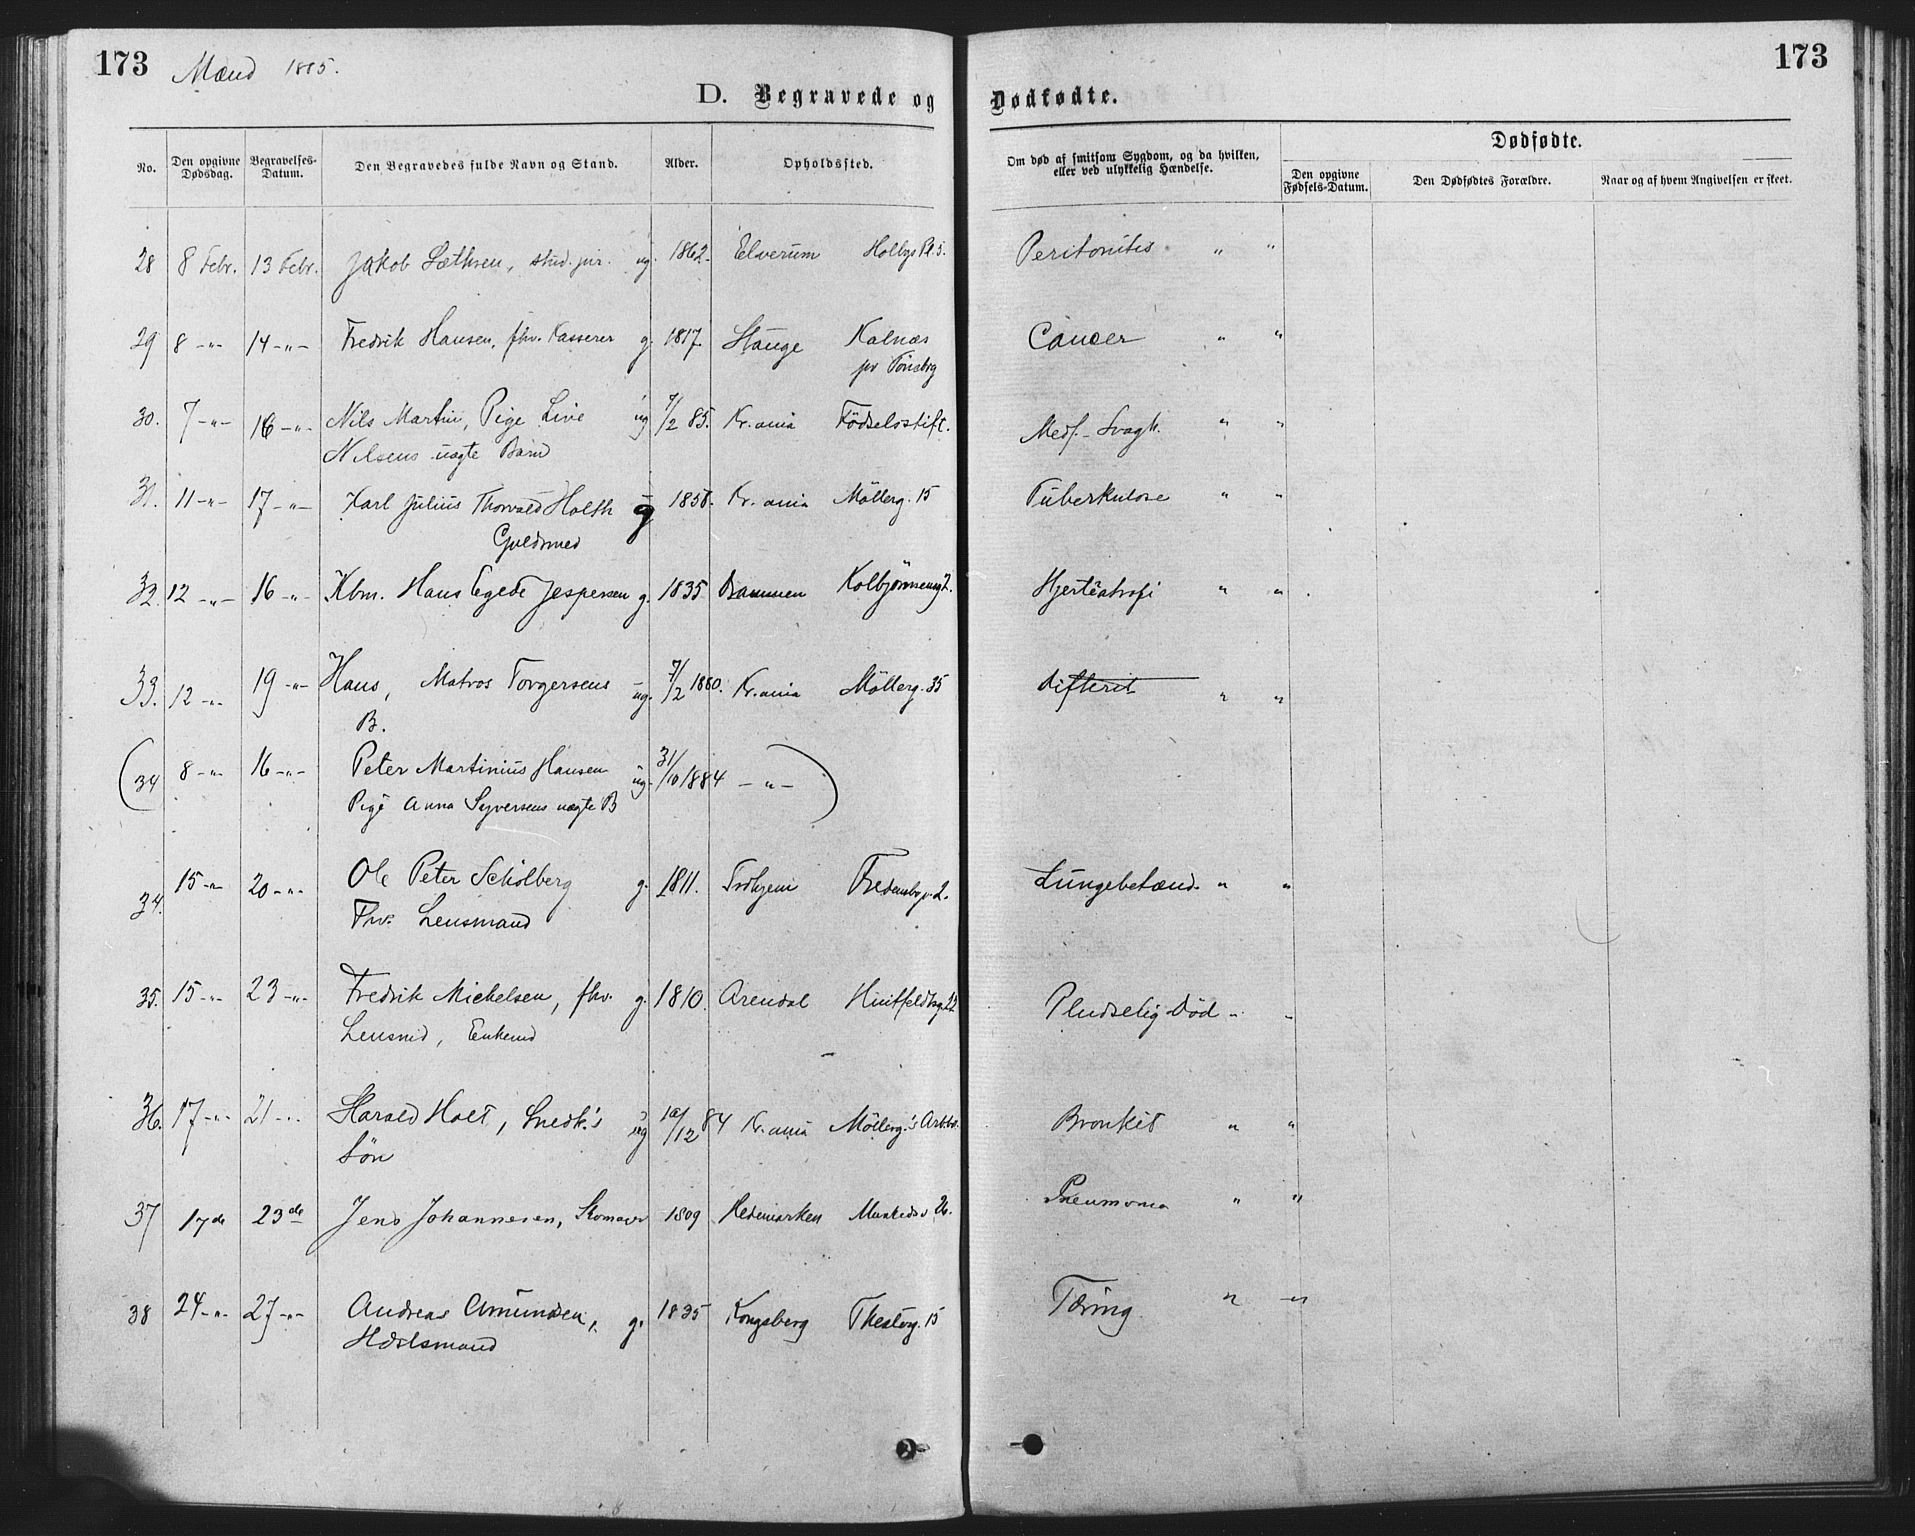 173 Mænd 1885. 173
D. Begravede og Dødfødte.
No. Den opgivne Dødsdag. Begravelses-Datum. Den Begravedes fulde Navn og Stand. Alder. Opholdssted. Om død af smitsom Sygdom, og da hvilken, eller ved ulykkelig Hændelse. Dødfødte.
Den opgivne Fødsels-Datum. Den Dødfødtes Forældre. Naar og af hvem Angivelsen er skeet.
28 8 Febr. 13 Febr. Jakob Sæthren, stud. jur. ug. 1862. Elverum Holbgs Pl. 5. Peritonitis " "
29 8 -"- 14 -"- Fredrik Hansen, fhv. Kasserer g. 1817 Stange Kalnæs Cancer " "
pr Tönsbrg
30. 7 -"- 16 -"- Nils Martin, Pige Live ug 7/2 85. Kr.ania Födselsstift. Medf. Svagh. " "
Nilsens uægte Barn
31. 11 -"- 17 -"- Karl Julius Thorvald Holth g 1858. Kr.ania Möllerg. 15 Tuberkulose " "
Guldsmed
32. 12 -"- 16 -"- Kbm. Hans Egede Jespersen g. 1835 Drammen Kolbjörnsensg 2. Hjerteatrofi " "
33. 12 -"- 19 -"- Hans, Matros Torgersens ug. 7/2 1880. Kr.ania Möllerg. 35 Difterit " "
B.
(34 8 -"- 16 -"- Peter Martinius Hansen ug. 31/10 1884 -"- )
Pige Anna Syversens uægte B
34. 15 -"- 20 -"- Ole Peter Schölberg g. 1811. Trdhjem Fredensbgv. 2. Lungebetænd. " "
Fhv. Lensmand
35. 15 -"- 23 -"- Fredrik Michelsen, fhv. g. 1810. Arendal Huitfeldtsg. 22 Pludselig Död " "
Lensmd, Enkemd
36. 17 -"- 21 -"- Harald Holt, Snedk.'s ug 10/12 84 Kr.ania Möllerg.'s Arb.bo. Bronkit " "
Sön
37 17de 23de Jens Johannesen, Skomager 1809 Hedemarken Munkedsv 26. Pneumonia " "
38 24 -"- 27 -"- Andreas Amundsen, g. 1835 Kongsberg Theaterg. 15 Tæring " "